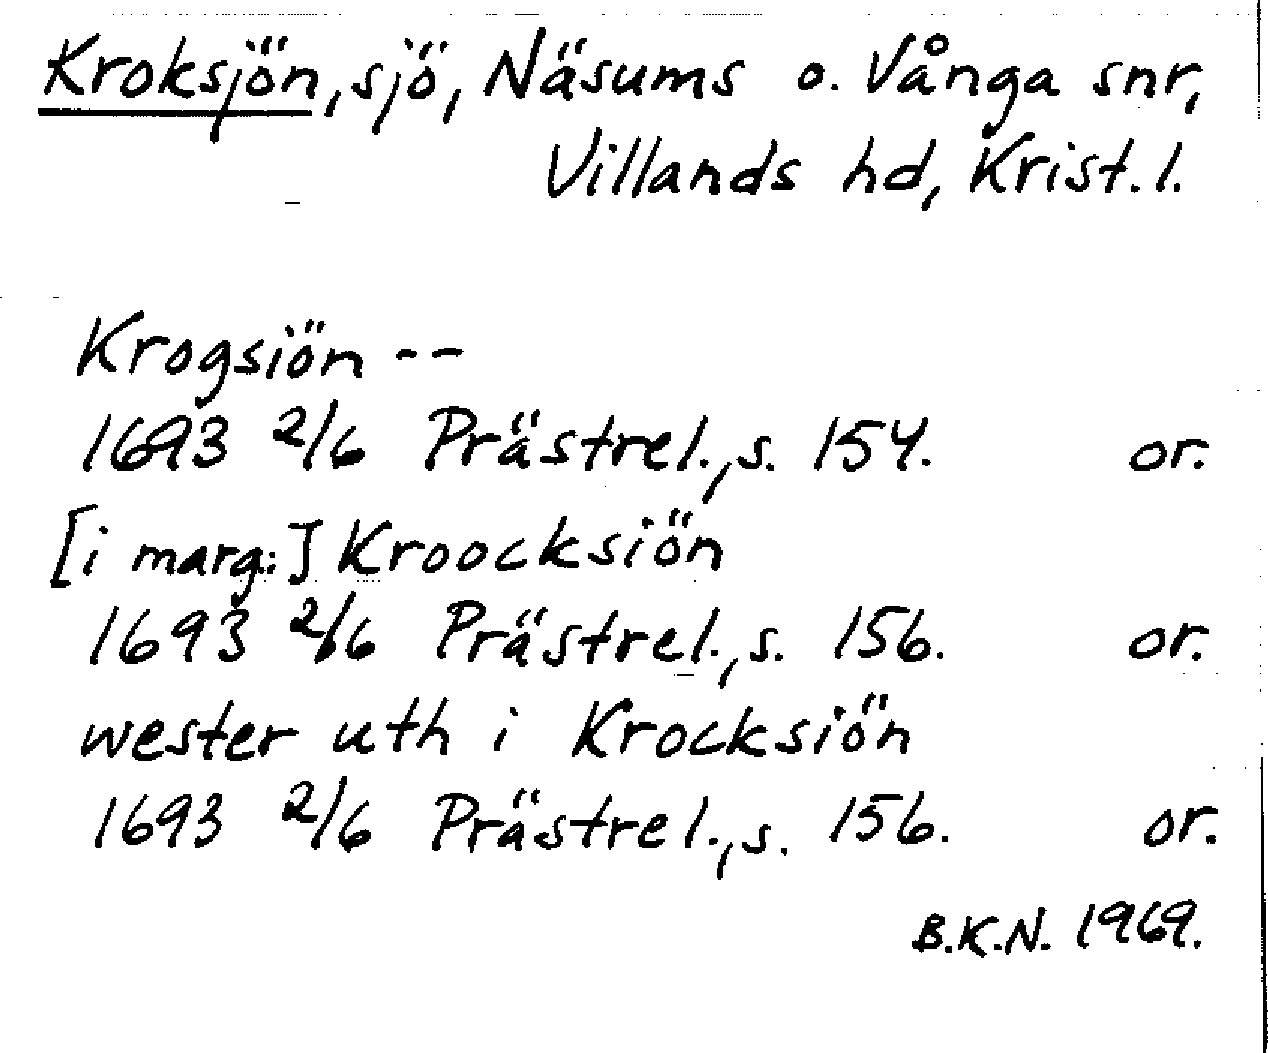 Kroksjön, sjö, Näsums o. Vånga snr,
Villands hd, Krist. l.
Krogsiön --
1693 2/6 Prästrel., s. 154. or.
[i marg.:] Kroocksiön
1693 2/6 Prästrel., s. 156. or.
wester uth i Krocksiön
1693 2/6 Prästrel., s. 156. or.
B.K.N. 1969.